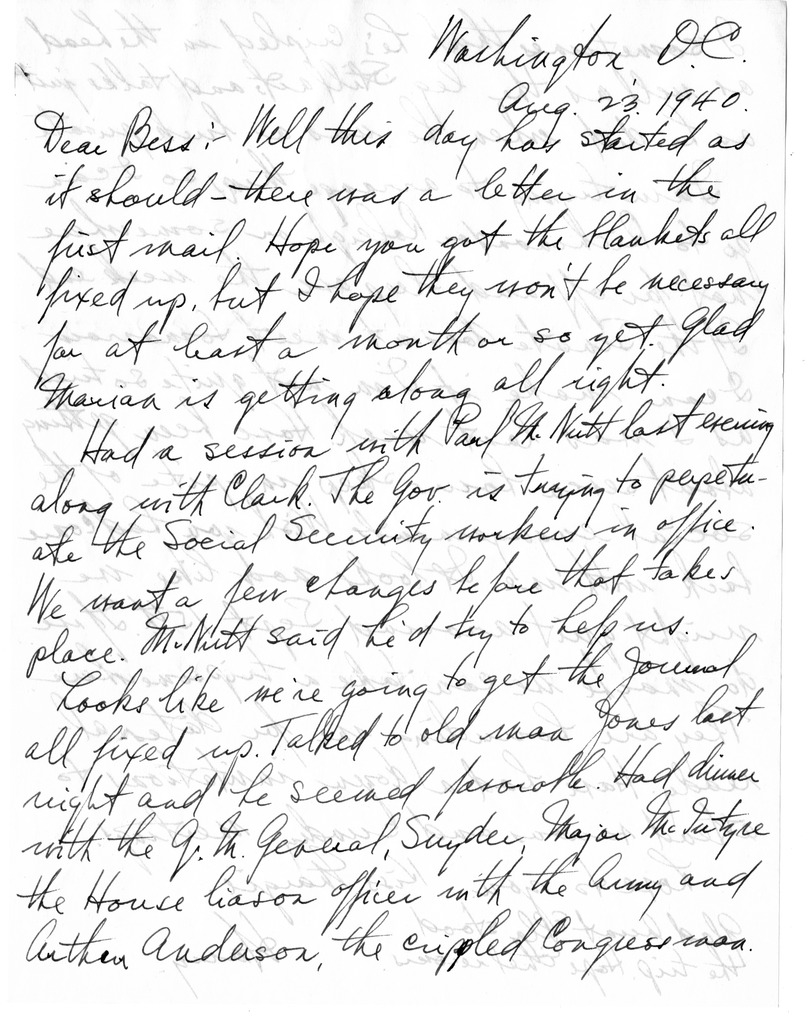 Washington, D.C.
Aug. 23, 1940.
Dear Bess:- Well this day has started as
it should - there was a letter in the
first mail. Hope you got the blankets all
fixed up, but I hope they won't be necessary
for at least a month or so yet. Glad
Marian is getting along all right.
Had a session with Paul McNutt last evening
along with Clark. The Gov. is trying to perpetu-
ate the Social Security workers in office.
We want a few changes before that takes
place. McNutt said he'd try to help us.
Looks like we're going to get the Journal
all fixed up. Talked to old man Jones last
night and he seemed favorable. Had dinner
with the Q.M. General, Snyder, Major McIntyre
the House liason officer with the Army and
Arthur Anderson, the crippled Congressman.